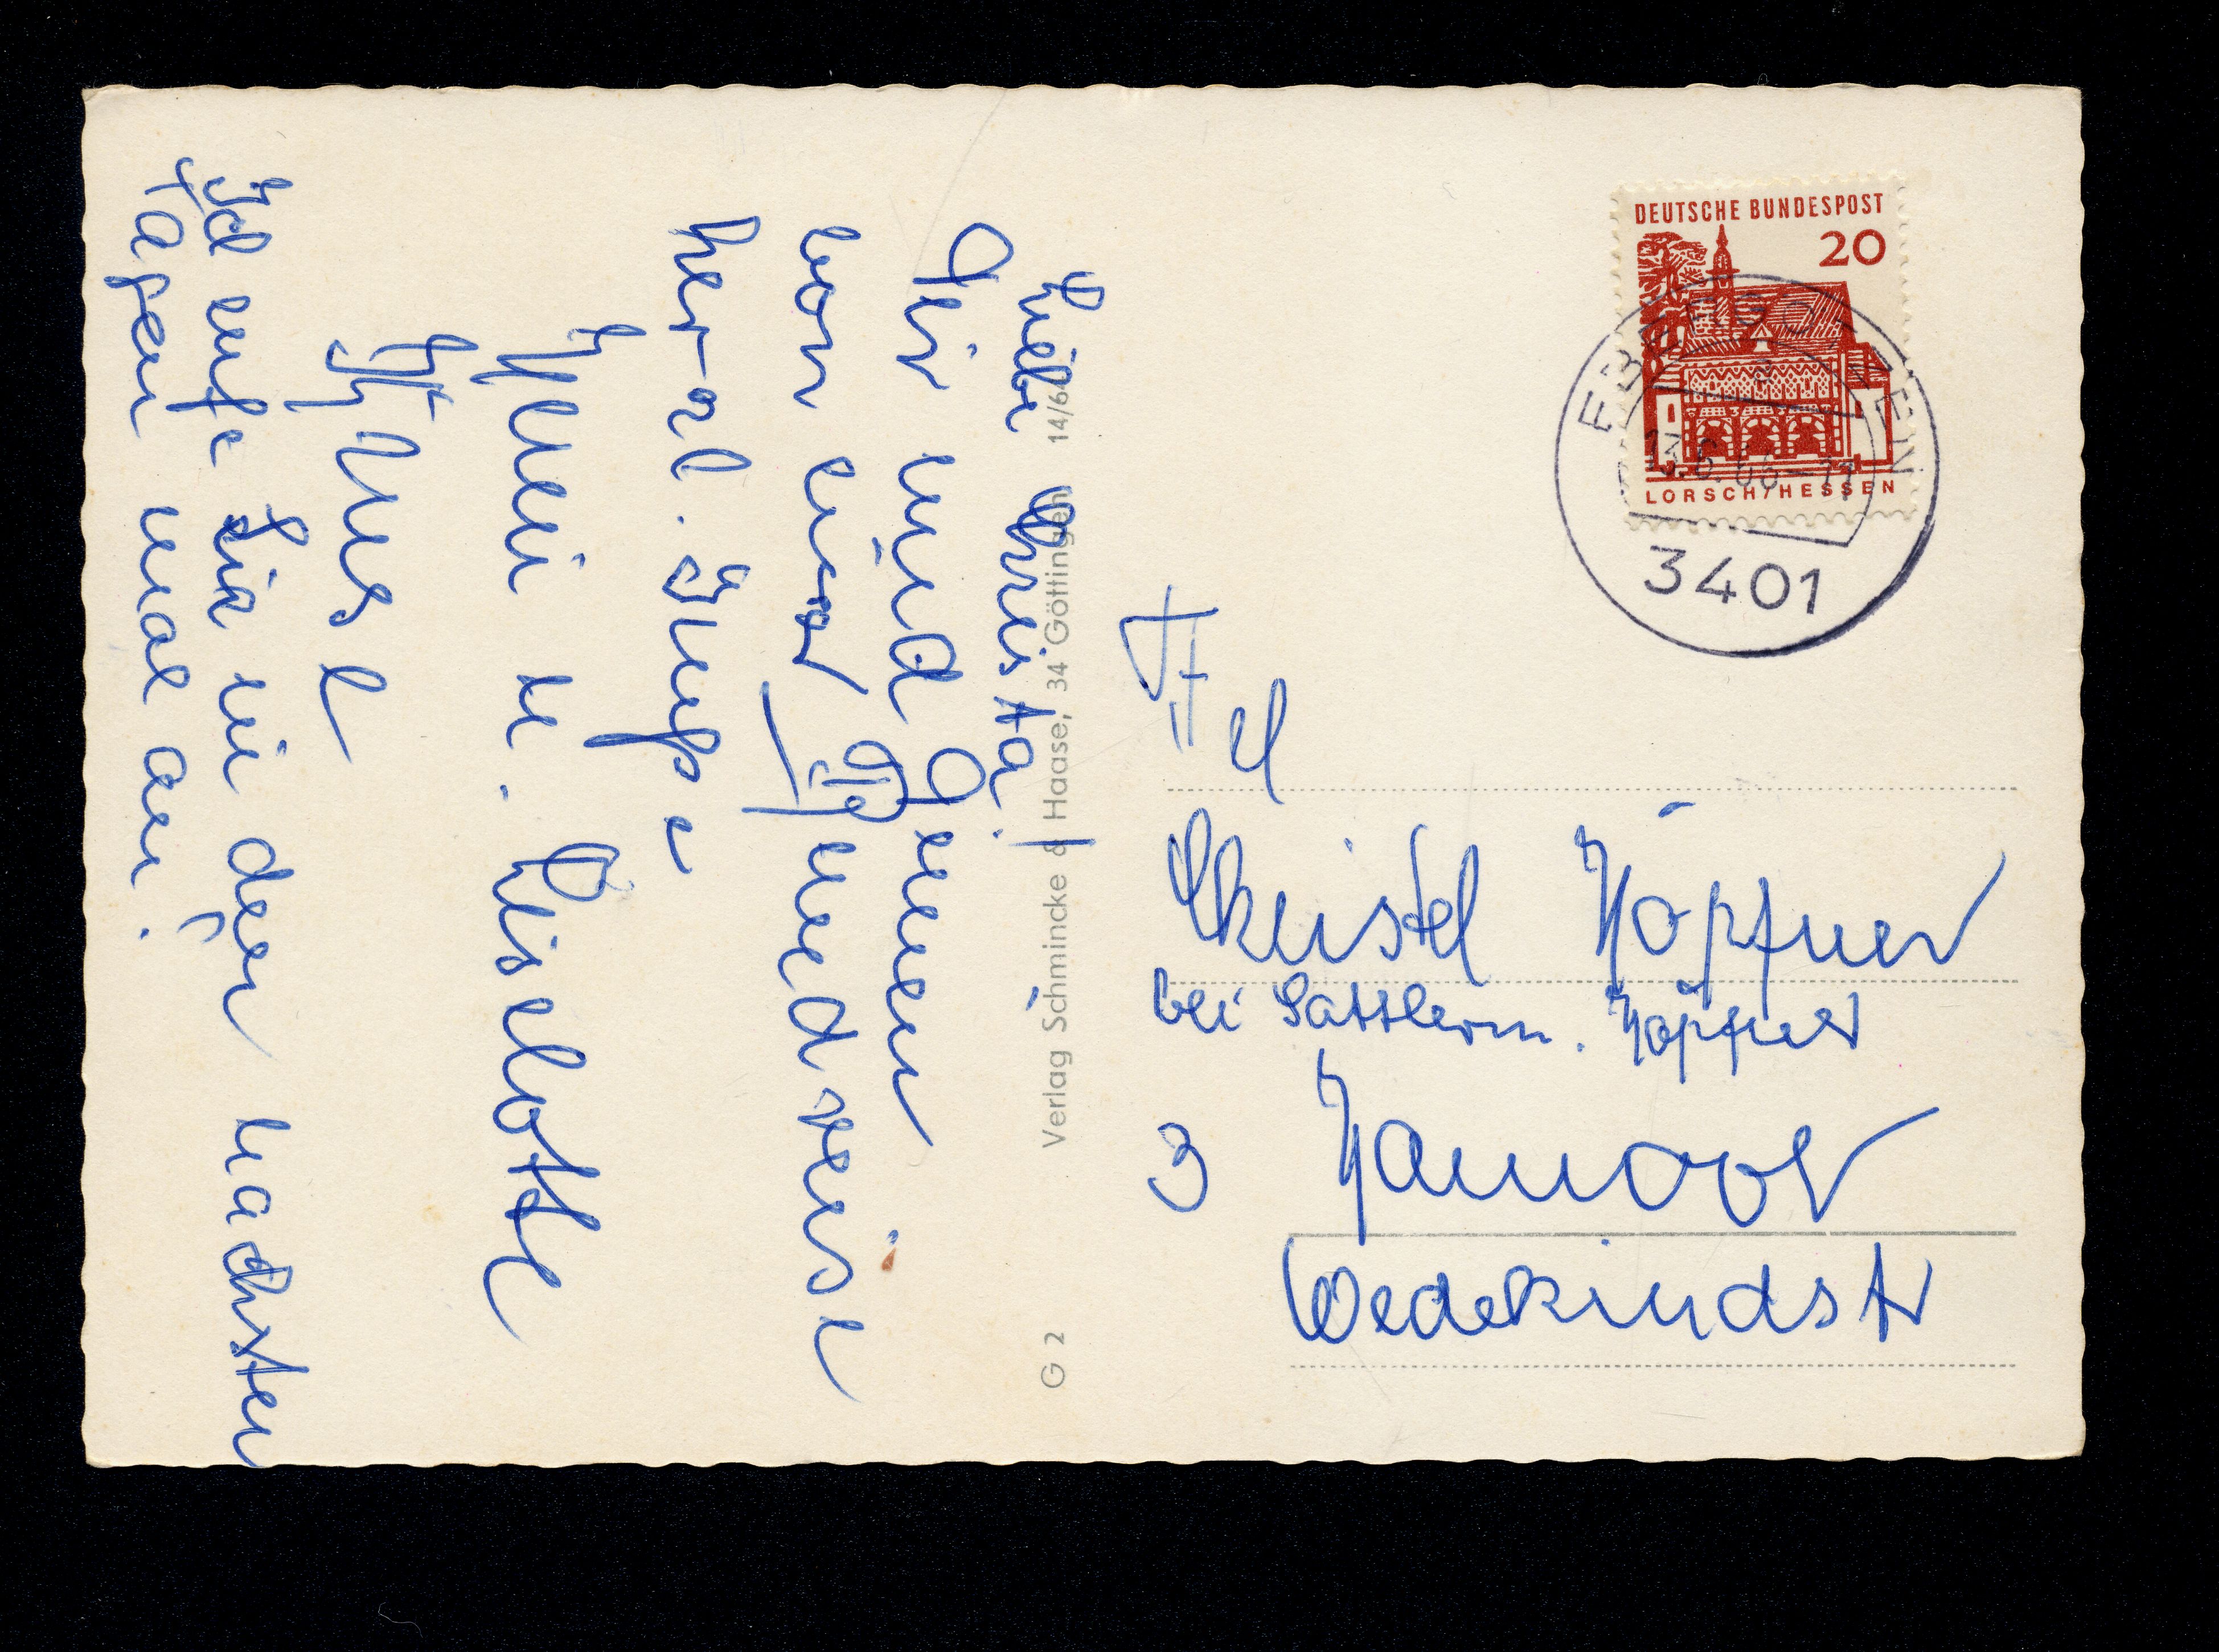 Liebe Christa!
Dir und Deinen
von einer Rundreise
herzl. Grüße
Ihre
Wilhelm u. Liselotte
Ich rufe Sie in den nächsten
Tagen mal an.
Verlag Schmincke & Haase, 34 Göttingen 14/64
G 2
DEUTSCHE BUNDESPOST
20
LORSCH/HESSEN
EBERGÖTZEN
a
13.6.66-11
3401
Frl
Christel Höpfner
bei Sattlerm. Höpfner
3 Hannover
Wedekindstr